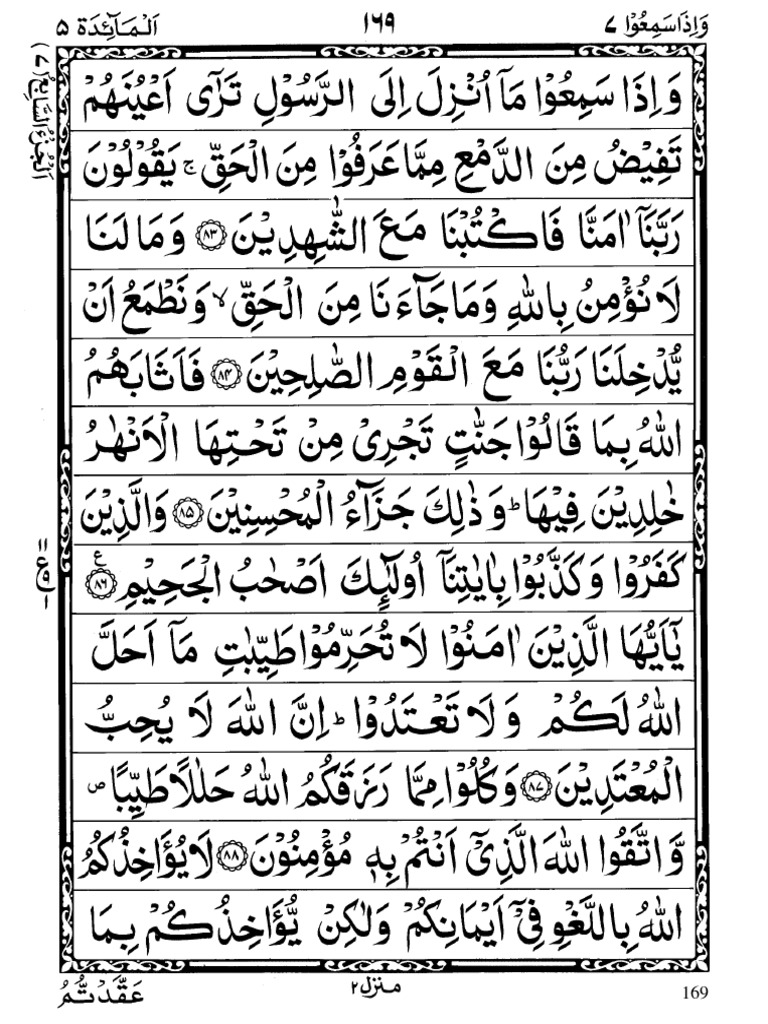 وَاِذَا سَمِعُوْا ٧ ١٦٩ اَلْمَآئِدَة ٥
اَلْجُزْءُ السَّابِعُ (٧)
وَاِذَا سَمِعُوْا مَآ اُنْزِلَ اِلَى الرَّسُوْلِ تَرٰٓى اَعْيُنَهُمْ
تَفِيْضُ مِنَ الدَّمْعِ مِمَّا عَرَفُوْا مِنَ الْحَقِّ ۚ يَقُوْلُوْنَ
رَبَّنَآ اٰمَنَّا فَاكْتُبْنَا مَعَ الشّٰهِدِيْنَ ۝٨٣ وَمَا لَنَا
لَا نُؤْمِنُ بِاللّٰهِ وَمَا جَآءَنَا مِنَ الْحَقِّ ۙ وَنَطْمَعُ اَنْ
يُّدْخِلَنَا رَبُّنَا مَعَ الْقَوْمِ الصّٰلِحِيْنَ ۝٨٤ فَاَثَابَهُمُ
اللّٰهُ بِمَا قَالُوْا جَنّٰتٍ تَجْرِيْ مِنْ تَحْتِهَا الْاَنْهٰرُ
خٰلِدِيْنَ فِيْهَا ؕ وَذٰلِكَ جَزَآءُ الْمُحْسِنِيْنَ ۝٨٥ وَالَّذِيْنَ
كَفَرُوْا وَكَذَّبُوْا بِاٰيٰتِنَآ اُولٰٓئِكَ اَصْحٰبُ الْجَحِيْمِ ۝٨٦ ع
يٰٓاَيُّهَا الَّذِيْنَ اٰمَنُوْا لَا تُحَرِّمُوْا طَيِّبٰتِ مَآ اَحَلَّ
اللّٰهُ لَكُمْ وَلَا تَعْتَدُوْا ؕ اِنَّ اللّٰهَ لَا يُحِبُّ
الْمُعْتَدِيْنَ ۝٨٧ وَكُلُوْا مِمَّا رَزَقَكُمُ اللّٰهُ حَلٰلًا طَيِّبًا ۪
وَّاتَّقُوا اللّٰهَ الَّذِيْٓ اَنْتُمْ بِهٖ مُؤْمِنُوْنَ ۝٨٨ لَا يُؤَاخِذُكُمُ
اللّٰهُ بِاللَّغْوِ فِيْٓ اَيْمَانِكُمْ وَلٰكِنْ يُّؤَاخِذُكُمْ بِمَا
169 منزل ٢ عَقَّدْتُّمُ